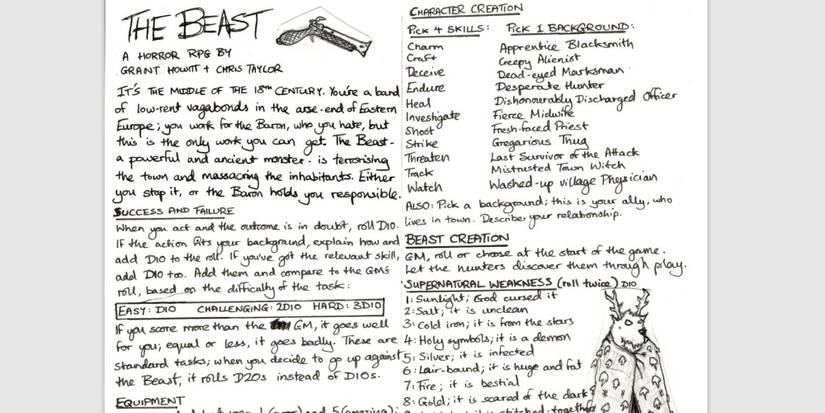 THE BEAST
A HORROR RPG BY
GRANT HOWITT + CHRIS TAYLOR
IT'S THE MIDDLE OF THE 18TH CENTURY. You're a band
of low-rent vagabonds in the arse-end of Eastern
Europe; you work for the Baron, who you hate, but
this is the only work you can get. The Beast -
a powerful and ancient monster - is terrorising
the town and massacring the inhabitants. Either
you stop it, or the Baron holds you responsible.
SUCCESS AND FAILURE
When you act and the outcome is in doubt, roll D10.
If the action fits your background, explain how and
add D10 to the roll. If you've got the relevant skill,
add D10 too. Add them and compare to the GMs
roll, based on the difficulty of the task:
EASY: D10 CHALLENGING: 2D10 HARD: 3D10
If you score more than the GM, it goes well
for you; equal or less, it goes badly. These are
standard tasks; when you decide to go up against
the Beast, it rolls D20s instead of D10s.
EQUIPMENT
CHARACTER CREATION
PICK 4 SKILLS: PICK 1 BACKGROUND:
Charm Apprentice Blacksmith
Craft Creepy Alienist
Deceive Dead-eyed Marksman
Endure Desperate Hunter
Heal Dishonourably Discharged Officer
Investigate Fierce Midwife
Shoot Fresh-faced Priest
Strike Gregarious Thug
Threaten Last Survivor of the Attack
Track Mistrusted Town Witch
Watch Washed-up village Physician
ALSO: Pick a background; this is your ally, who
lives in town. Describe your relationship.
BEAST CREATION
GM, roll or choose at the start of the game.
Let the hunters discover them through play.
SUPERNATURAL WEAKNESS (roll twice) D10
1: Sunlight; God cursed it
2: Salt; it is unclean
3: Cold iron; it is from the stars
4: Holy symbols; it is a demon
5: Silver; it is infected
6: Lair-bound; it is huge and fat
7: Fire; it is bestial
8: Gold; it is scared of the dark